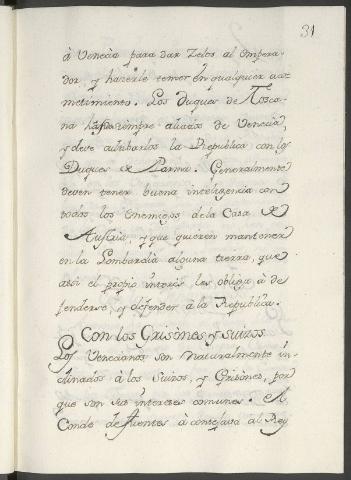 31
à Venecia para dar Zelos al Empera-
dor, y hazerle temer en qualquier aco-
metimiento. Los Duques de Tosca-
na siempre aliados de Venecia,
y deve la Republica con los
Duques de Parma. Generalmente
deven tener buena inteligencia con
todos los enemigos de la Casa de
Austria, y que quieren mantener
en la Lombardia alguna tierra, que
assi el propio interès les obliga à de
fenderse, y defender à la Republica.
Con los Grisònes y suizos
Los Venecianos son naturalmente in-
clinados à los Suizos, y Grisònes, por
que son sus intereses comunes. El
Conde de fuentes à contestava al Rey